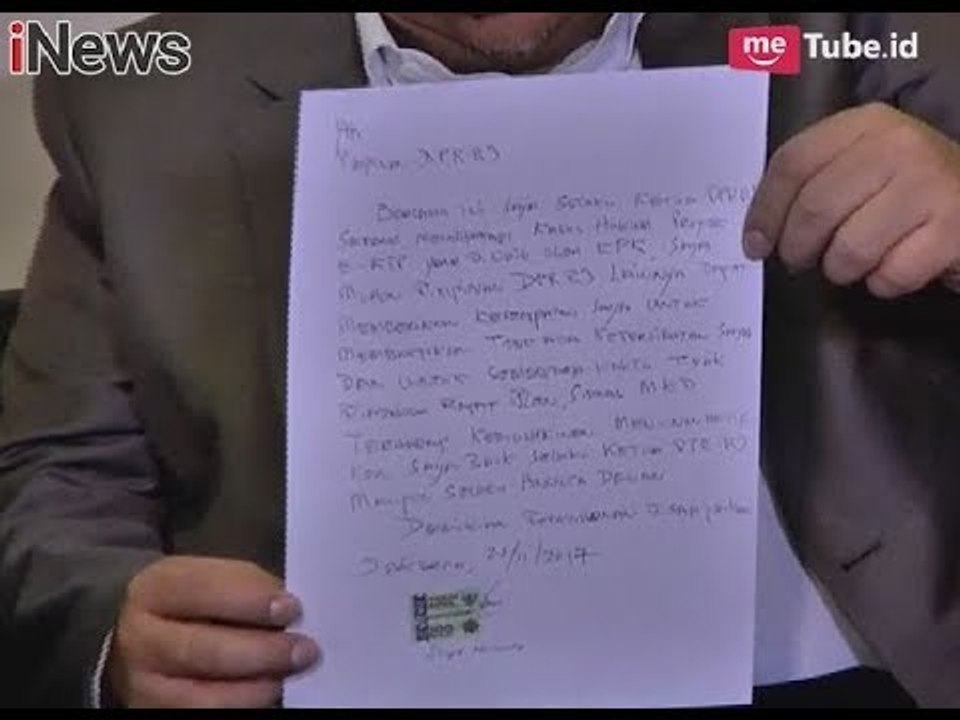 iNews
me Tube.id
Pimpinan DPR-RI
Bersama ini saya selaku Ketua DPR RI
sedang menghadapi kasus hukum Proyek
E-KTP yang di oleh KPK, saya
mohon Pimpinan DPR RI lainnya dapat
memberikan kesempatan saya untuk
membuktikan tidak ada keterlibatan saya
dan untuk sementara waktu tidak
diadakan Rapat Pleno, sidang MKD
terhadap kemungkinan menonaktif
kan saya baik selaku Ketua DPR RI
maupun selaku Anggota Dewan
Demikian permohonan disampaikan
Jakarta, /11/2017